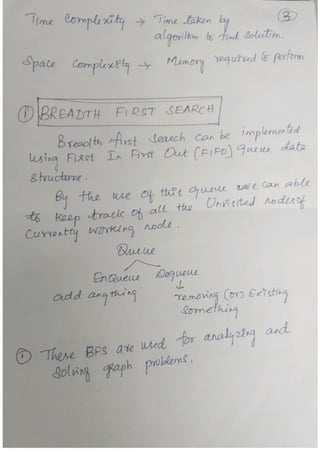 ③
Time Complexity → Time taken by
algorithm to find solution.
Space Complexity → Memory required to perform
① BREADTH FIRST SEARCH
Breadth first search can be implemented
using First In First Out (FIFO) queue data
structure.
By the use of this queue we can able
to keep track of all the Unvisited nodes of
currently working node.
Queue
Enqueue Dequeue
add anything ↓
removing (or) Existing
something
① These BFS are used for analyzing and
solving graph problems.